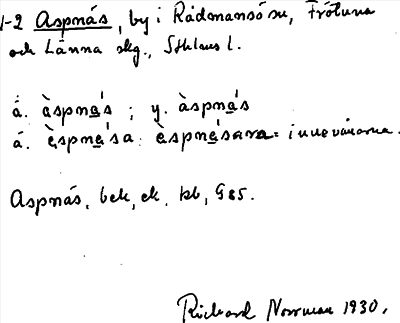 1-2 Aspnäs, by i Rådmansö sn, Frötuna
och Länna skg., Sthlms l.
ä. àspnä̀s ; y. àspnä́s
ä. èspnäsa: èspnäsara = innevånarna.
Aspnäs, bek, ek. kb, G85.
Richard Norrman 1930.